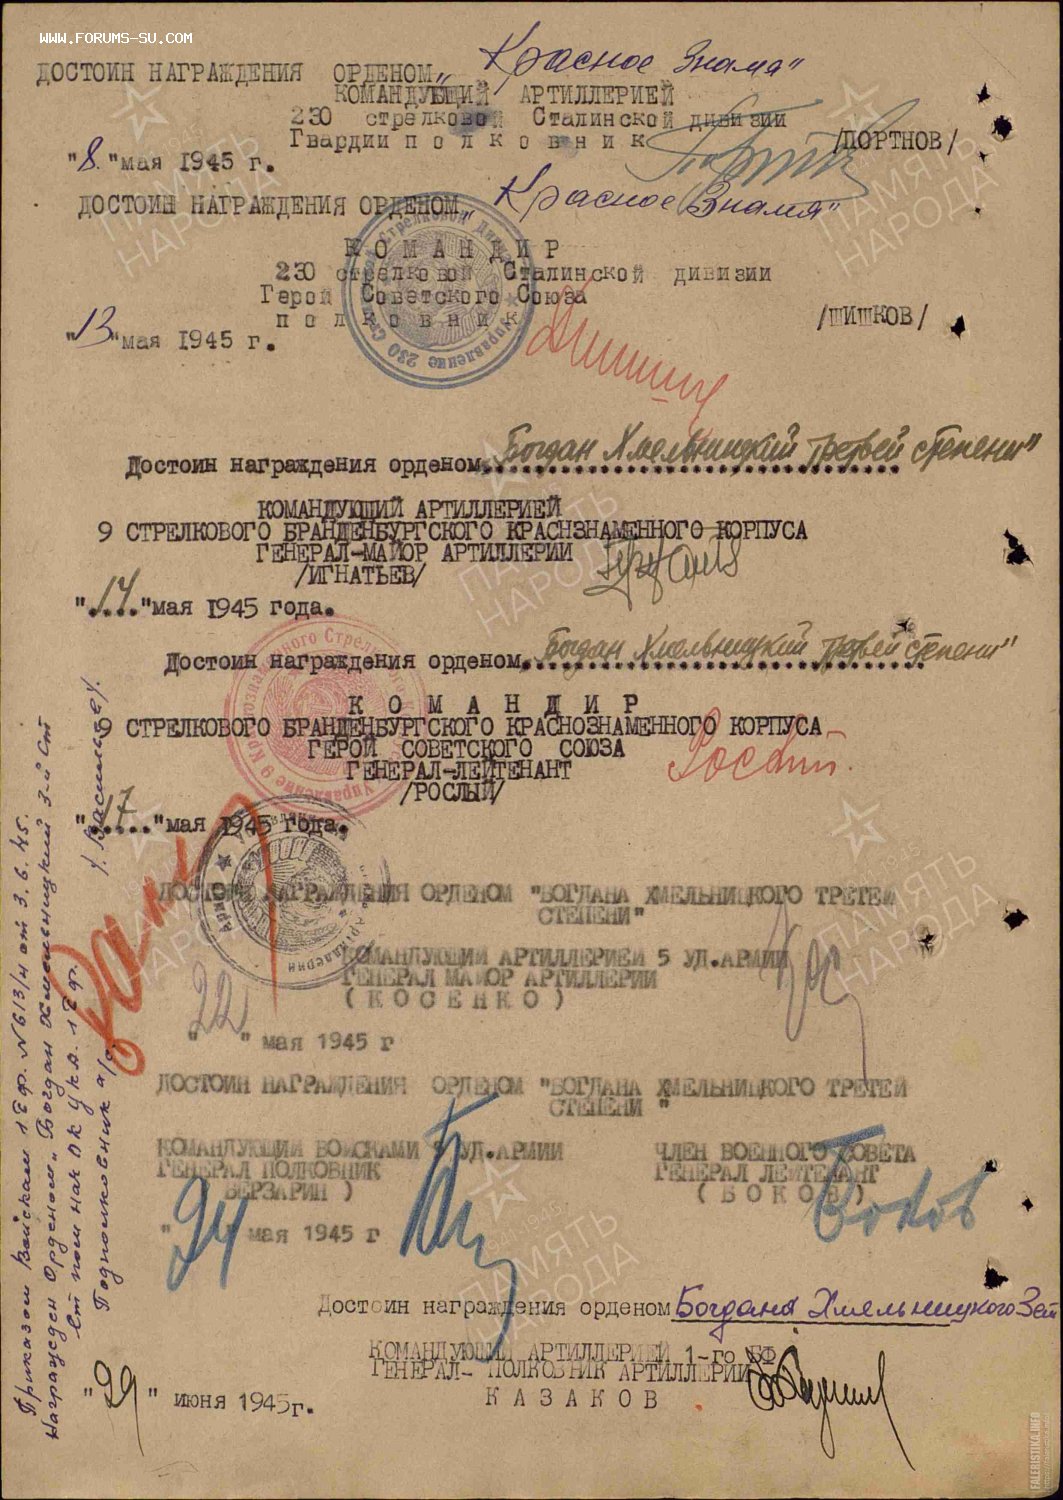 WWW.FORUMS-SU.COM
ДОСТОИН НАГРАЖДЕНИЯ ОРДЕНОМ „Красное Знамя"
КОМАНДУЮЩИЙ АРТИЛЛЕРИЕЙ
230 стрелковой Сталинской дивизии
Гвардии полковник /ПОРТНОВ/
"8."мая 1945 г.
ДОСТОИН НАГРАЖДЕНИЯ ОРДЕНОМ „Красное Знамя"
КОМАНДИР
230 стрелковой Сталинской дивизии
Герой Советского Союза
полковник /ШИШКОВ/
"13"мая 1945 г.
Достоин награждения орденом Богдан Хмельницкий третей степени"
КОМАНДУЮЩИЙ АРТИЛЛЕРИЕЙ
9 СТРЕЛКОВОГО БРАНДЕНБУРГСКОГО КРАСНЗНАМЕННОГО КОРПУСА
ГЕНЕРАЛ-МАЙОР АРТИЛЛЕРИИ
/ИГНАТЬЕВ/
"14"мая 1945 года.
Достоин награждения орденом Богдан Хмельницкий третей степени"
КОМАНДИР
9 СТРЕЛКОВОГО БРАНДЕНБУРГСКОГО КРАСНОЗНАМЕННОГО КОРПУСА
ГЕРОЙ СОВЕТСКОГО СОЮЗА
ГЕНЕРАЛ-ЛЕЙТЕНАНТ
/РОСЛЫЙ/
"17"мая 1945 года.
ДОСТОИН НАГРАЖДЕНИЯ ОРДЕНОМ "БОГДАНА ХМЕЛЬНИЦКОГО ТРЕТЕЙ
СТЕПЕНИ"
КОМАНДУЮЩИЙ АРТИЛЛЕРИЕЙ 5 УД.АРМИИ
ГЕНЕРАЛ МАЙОР АРТИЛЛЕРИИ
(КОСЕНКО)
"22" мая 1945 г
ДОСТОИН НАГРАЖДЕНИЯ ОРДЕНОМ "БОГДАНА ХМЕЛЬНИЦКОГО ТРЕТЕЙ
СТЕПЕНИ"
КОМАНДУЮЩИЙ ВОЙСКАМИ 5 УД.АРМИИ ЧЛЕН ВОЕННОГО СОВЕТА
ГЕНЕРАЛ ПОЛКОВНИК ГЕНЕРАЛ ЛЕЙТЕНАНТ
БЕРЗАРИН) (БОКОВ)
"24" мая 1945 г Боков
Достоин награждения орденом Богдана Хмельницкого 3 ст
КОМАНДУЮЩИЙ АРТИЛЛЕРИЕЙ 1-го БФ
ГЕНЕРАЛ-ПОЛКОВНИК АРТИЛЛЕРИИ
КАЗАКОВ
"29" июня 1945г.
Приказом Войскам 1БФ. №613/н от 3.6.45.
Награжден Орденом „Богдан Хмельницкий 3-й ст
Ст пом нач ОК Укд. 1БФ.
Подполковник а/с /Васильев/.
ПАМЯТЬ
НАРОДА
FALERISTIKA.INFO